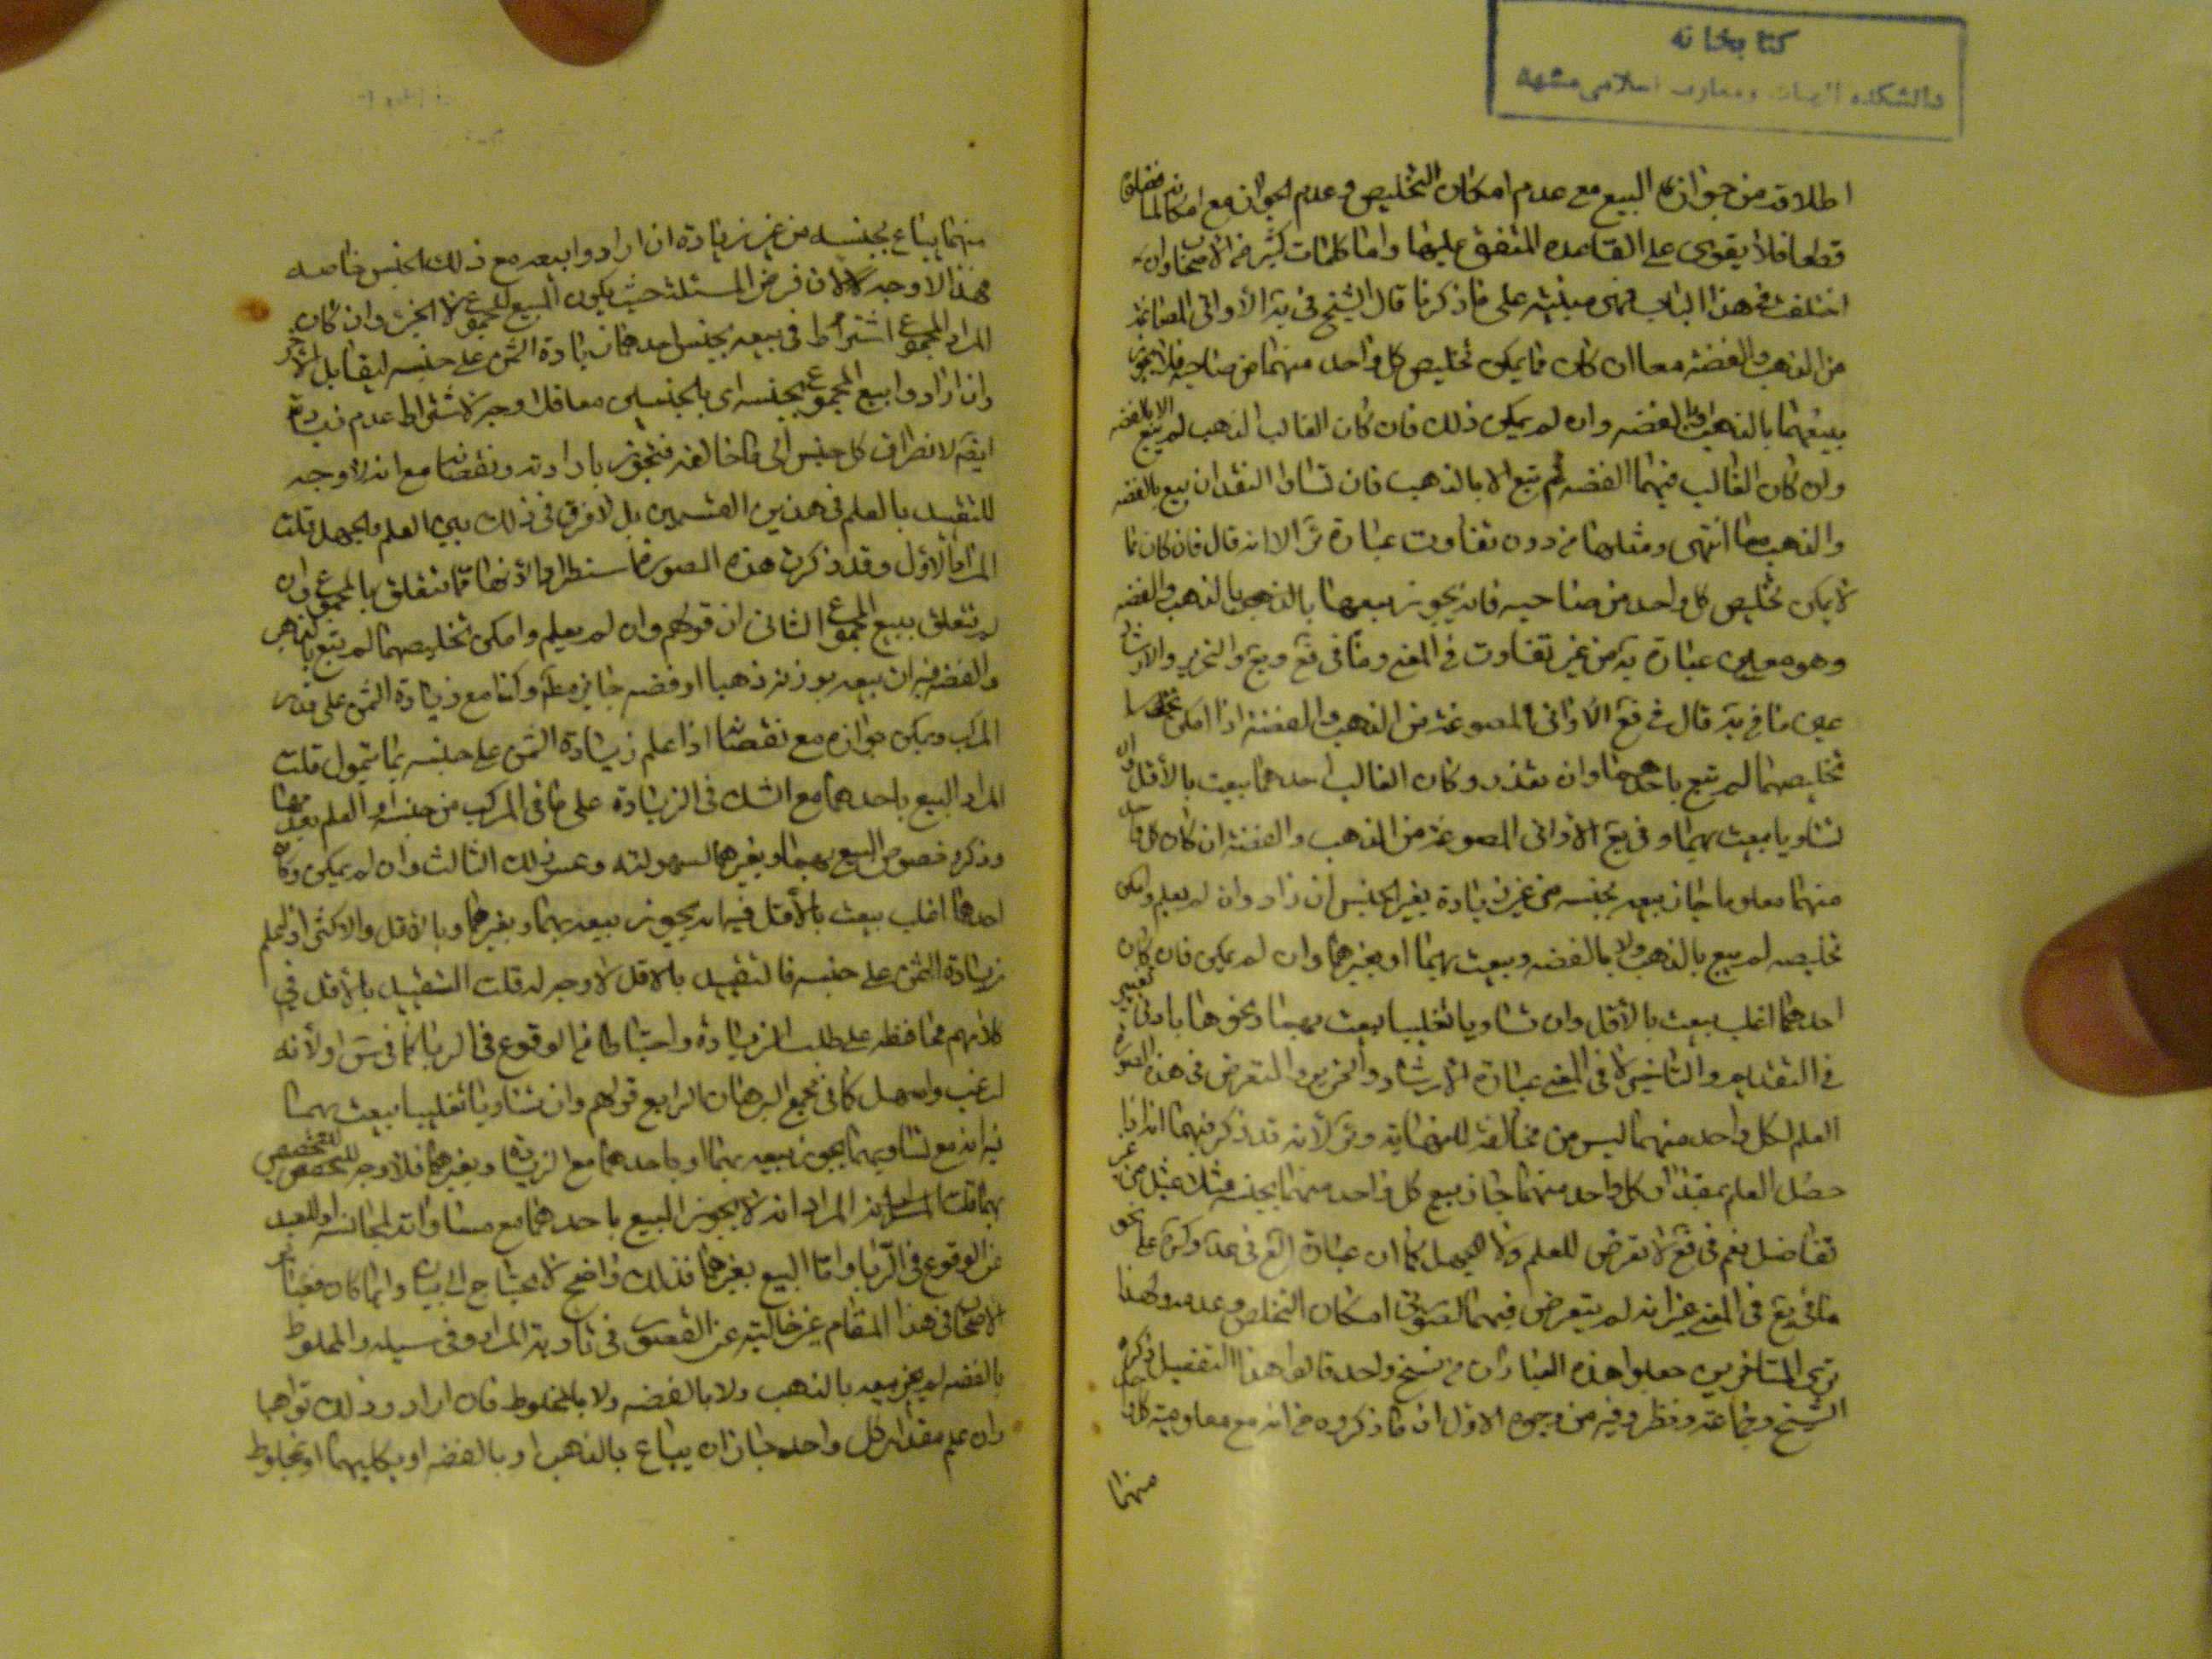 كتابخانه
دانشكده الهيات ومعارف اسلامى مشهد
اطلاقه من جواز البيع مع عدم امكان التخليص وعدم الجواز مع امكانه
قطعا فلا يقوى على القاعده المتفق عليها واما كلمات كثير من الاصحاب وان
اختلفت فى هذا الباب فهى مبنيته على ما ذكرنا قال الشيخ فى يه الأوانى المصاغة
من الذهب والفضة معا ان كان مما يمكن تخليص كل واحد منهما من صاحبه فلا يجوز
بيعهما بالذهب والفضه وان لم يمكن ذلك فان كان الغالب الذهب لم يبع الا بالفضه
وان كان الغالب فيهما الفضه لم تبع الا بالذهب فان تساوا النقدان بيع بالفضه
والذهب معا انتهى ومثلها من دون تفاوت عبارة ئر الا انه قال فان كان مما
لا يمكن تخليص كل واحد من صاحبه فانه يجوز بيعهما بالذهب والفضه
وهو معين عبارة يه من غير تفاوت فى المعنى وما فى فع ويع والتحرير والارشاد
عين ما فى يه قال فى فع الأوانى المصوغة من الذهب والفضة اذا امكن
تخليصهما لم تبع باحدهما وان تعذر وكان الغالب احدهما بيعت بالأقل وان
تساويا بيعت بهما وفى يع الاوانى المصوغة من الذهب والفضة ان كان كل واحد
منهما معلوما جاز بيعه بجنسه من غير زيادة وبغير الجنس ان زاد وان لم يعلم وامكن
تخليصه لم يبع بالذهب ولا بالفضه وبيعت بهما او بغيرهما وان لم يمكن فان كان
احدهما اغلب بيعت بالأقل وان تساويا تغليبا بيعت بهما ونحوها بادنى تغيير
فى التقديم والتاخير لا فى المعنى عبارة الارشاد والتحرير والتعرض فى هذه الصورة
العلم لكل واحد منهما ليس من مخالفة للنهايه وئر لأنه قد ذكر فيهما انه اذا
حصل العلم بمقدار كل واحد منهما جاز بيع كل واحد منهما بجنسه مثلا بمثل من غير
تفاضل نعم فى فع لا تعرض للعلم ولا للجهل كما ان عبارة
ما فى يع فى المعنى غير انه لم يتعرض فيهما لصورتى امكان التخلص وعدمه ولهذا
ترى المتأخرين جعلوا هذه العبارات من سنخ واحد قالوا هذا التفصيل ذكره
الشيخ وجماعة ونظروا فيه من وجوه الاول ان ما ذكروه من انه مع معلومية كل واحد
منهما
منهما يباع بجنسه من غير زيادة ان ارادوا بيعه مع ذلك الجنس خاصه
فهذا لا وجه له لان فرض المسئلة حيث يكون المبيع المجموع لا الجزء وان كان
المراد المجموع اشترط فى بيعه بجنس احدهما زيادة الثمن على جنسه ليقابل الآخر
وان ارادوا بيع المجموع بجنسه اى بالجنسين معا فلا وجه لاشتراط عدم زيادة
ايضا لانصراف كل جنس الى ما خالفه فتجوز زيادته ونقصانه مع انه لا وجه
للتقييد بالعلم فى هذين القسمين بل لا فرق فى ذلك بين العلم والجهل قلت
المراد الأول وقد ذكرت هذه الصورة استطرادا لانها مما تتعلق بالمجموع وان
لم تتعلق ببيع المجموع الثانى ان قولهم وان لم يعلم وامكن تخليصهما لم تبع بالذهب
والفضه فيه ان بيعه بوزنه ذهبا او فضه جايز مطلقا وكذا مع زيادة الثمن على قدر
المركب ويمكن جوازه مع نقصانه اذا علم زيادة الثمن على جنسه بما يتمول قلت
المراد البيع باحدهما مع الشك فى الزيادة على ما فى المركب من جنسه او العلم بعدمها
وذكر خصوص البيع بهما او بغيرهما لسهولته وعسر ذلك الثالث وان لم يمكن وكان
احدهما اغلب بيعت بالأقل فيه انه يجوز بيعه بهما وبغيرهما وبالاقل والاكثر اذا علم
زيادة الثمن على جنسه فالتقييد بالاقل لا وجه له قلت التقييد بالأقل فى
كلامهم محافظه على طلب الزيادة واحتياطا من الوقوع فى الربا كما فى س او لأنه
ارغب واسهل كما فى مجمع البرهان الرابع قولهم وان تساويا تغليبا بيعت بهما
فيه انه مع تساويهما يجوز بيعه بهما وباحدهما مع الزيادة وبغيرهما فلا وجه للتخصيص
بهما قلت المراد انه لا يجوز البيع باحدهما مع مساواته لمجانسه للبعد
عن الوقوع فى الربا واما البيع بغيرهما فذلك واضح لا يحتاج الى بيان وانما كان
الاصحاب فى هذا المقام غير خاليه عن القصور فى تاديه المراد وفى سيله والمخلوط
بالفضه لم يجز بيعه بالذهب ولا بالفضه ولا بالمخلوط فان اراد وذلك تواهبا
وان علم مقدار كل واحد جاز ان يباع بالذهب او بالفضه او بكليهما او بمخلوط